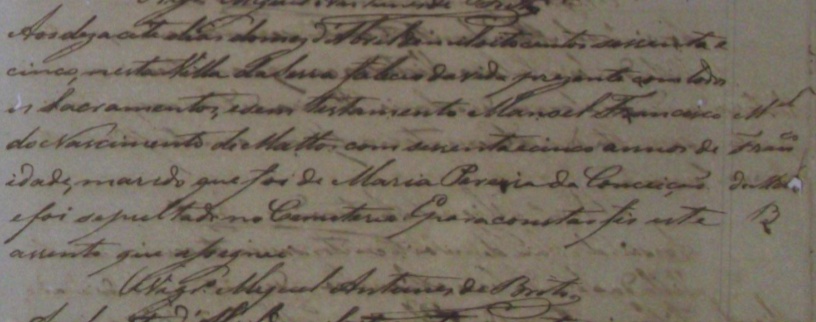 Vigr.º Miguel Antunes de Brito
Aos dezacete dias do mez d'Abril de mil oito centos sesenta e
cinco, nesta Villa da Serra faleceo da vida prezente com todos
os Sacramentos, e sem testamento Manoel Francisco
do Nascimento de Mattos com sesenta e cinco annos de
idade, marido que foi de Maria Pereira da Conceição
e foi sepultado no Cemiterio E para constar fis este
assento que assignei
Vigr.º Miguel Antunes de Brito
M.el
Fran.co